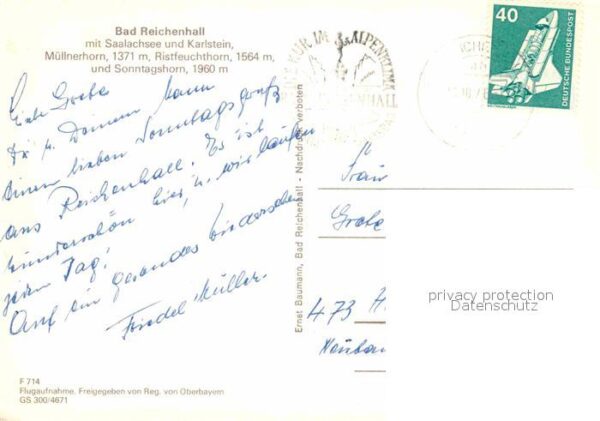 Bad Reichenhall
mit Saalachsee und Karlstein,
Müllnerhorn, 1371 m, Ristfeuchthorn, 1564 m,
und Sonntagshorn, 1960 m
Liebe Grete
Dir u. Deinem Mann
einen lieben Sonntagsgruß
aus Reichenhall. Es ist
wunderschön hier, u. wir laufen
jeden Tag!
Auf ein gesundes Wiedersehen
Friedel Müller.
F 714
Flugaufnahme. Freigegeben von Reg. von Oberbayern
GS 300/4671
Ernst Baumann, Bad Reichenhall - Nachdruck verboten
KUR IM ALPENKLIMA
40
DEUTSCHE BUNDESPOST
Frau
Grete
473 H
privacy protection
Datenschutz